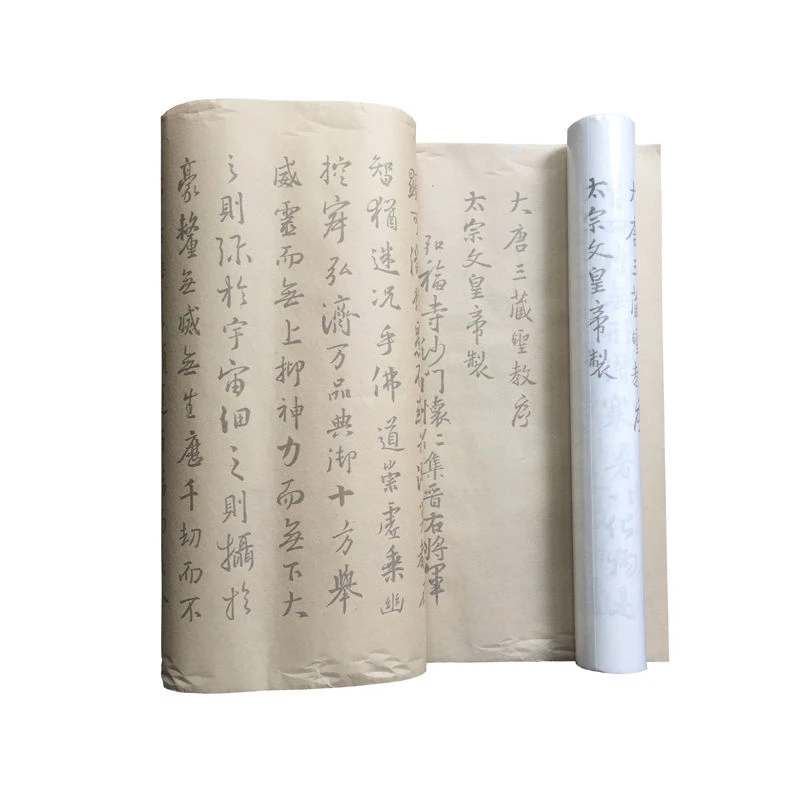 唐三藏聖教序
太宗文皇帝製
大唐三藏聖教序
太宗文皇帝製
弘福寺沙門懷仁集晉右將軍
智猶迷况乎佛道崇虛乘幽
控寂弘濟万品典御十方舉
威靈而無上抑神力而無下大
之則弥於宇宙細之則攝於
豪釐無滅無生歷千劫而不